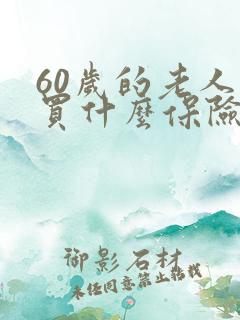 60歲的老人
買什麼保險
御影石材
未经同意禁止转载